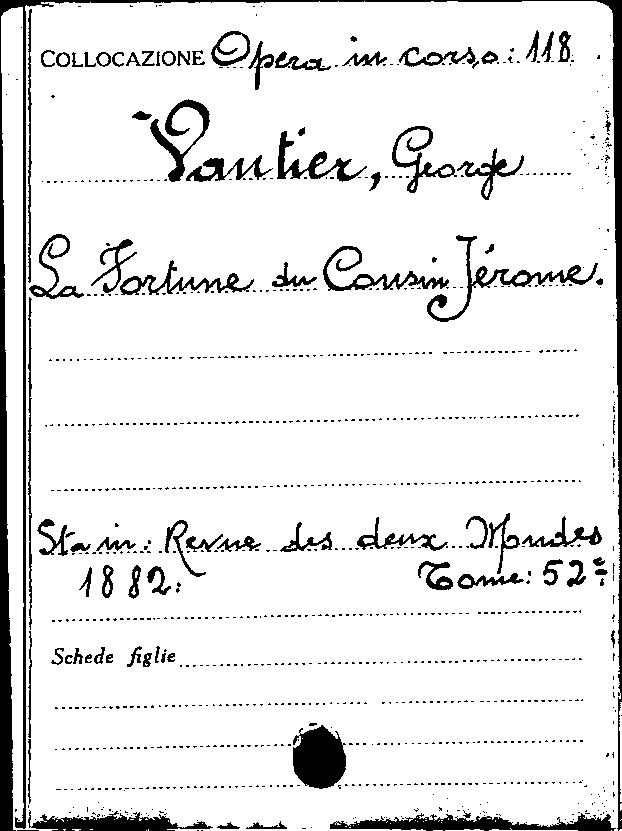 COLLOCAZIONE Opera in corso: 118
Vautier, George
La Fortune du Cousin Jérome.
Sta in: Revue des deux Mondes
1882. Tome: 52e
Schede figlie